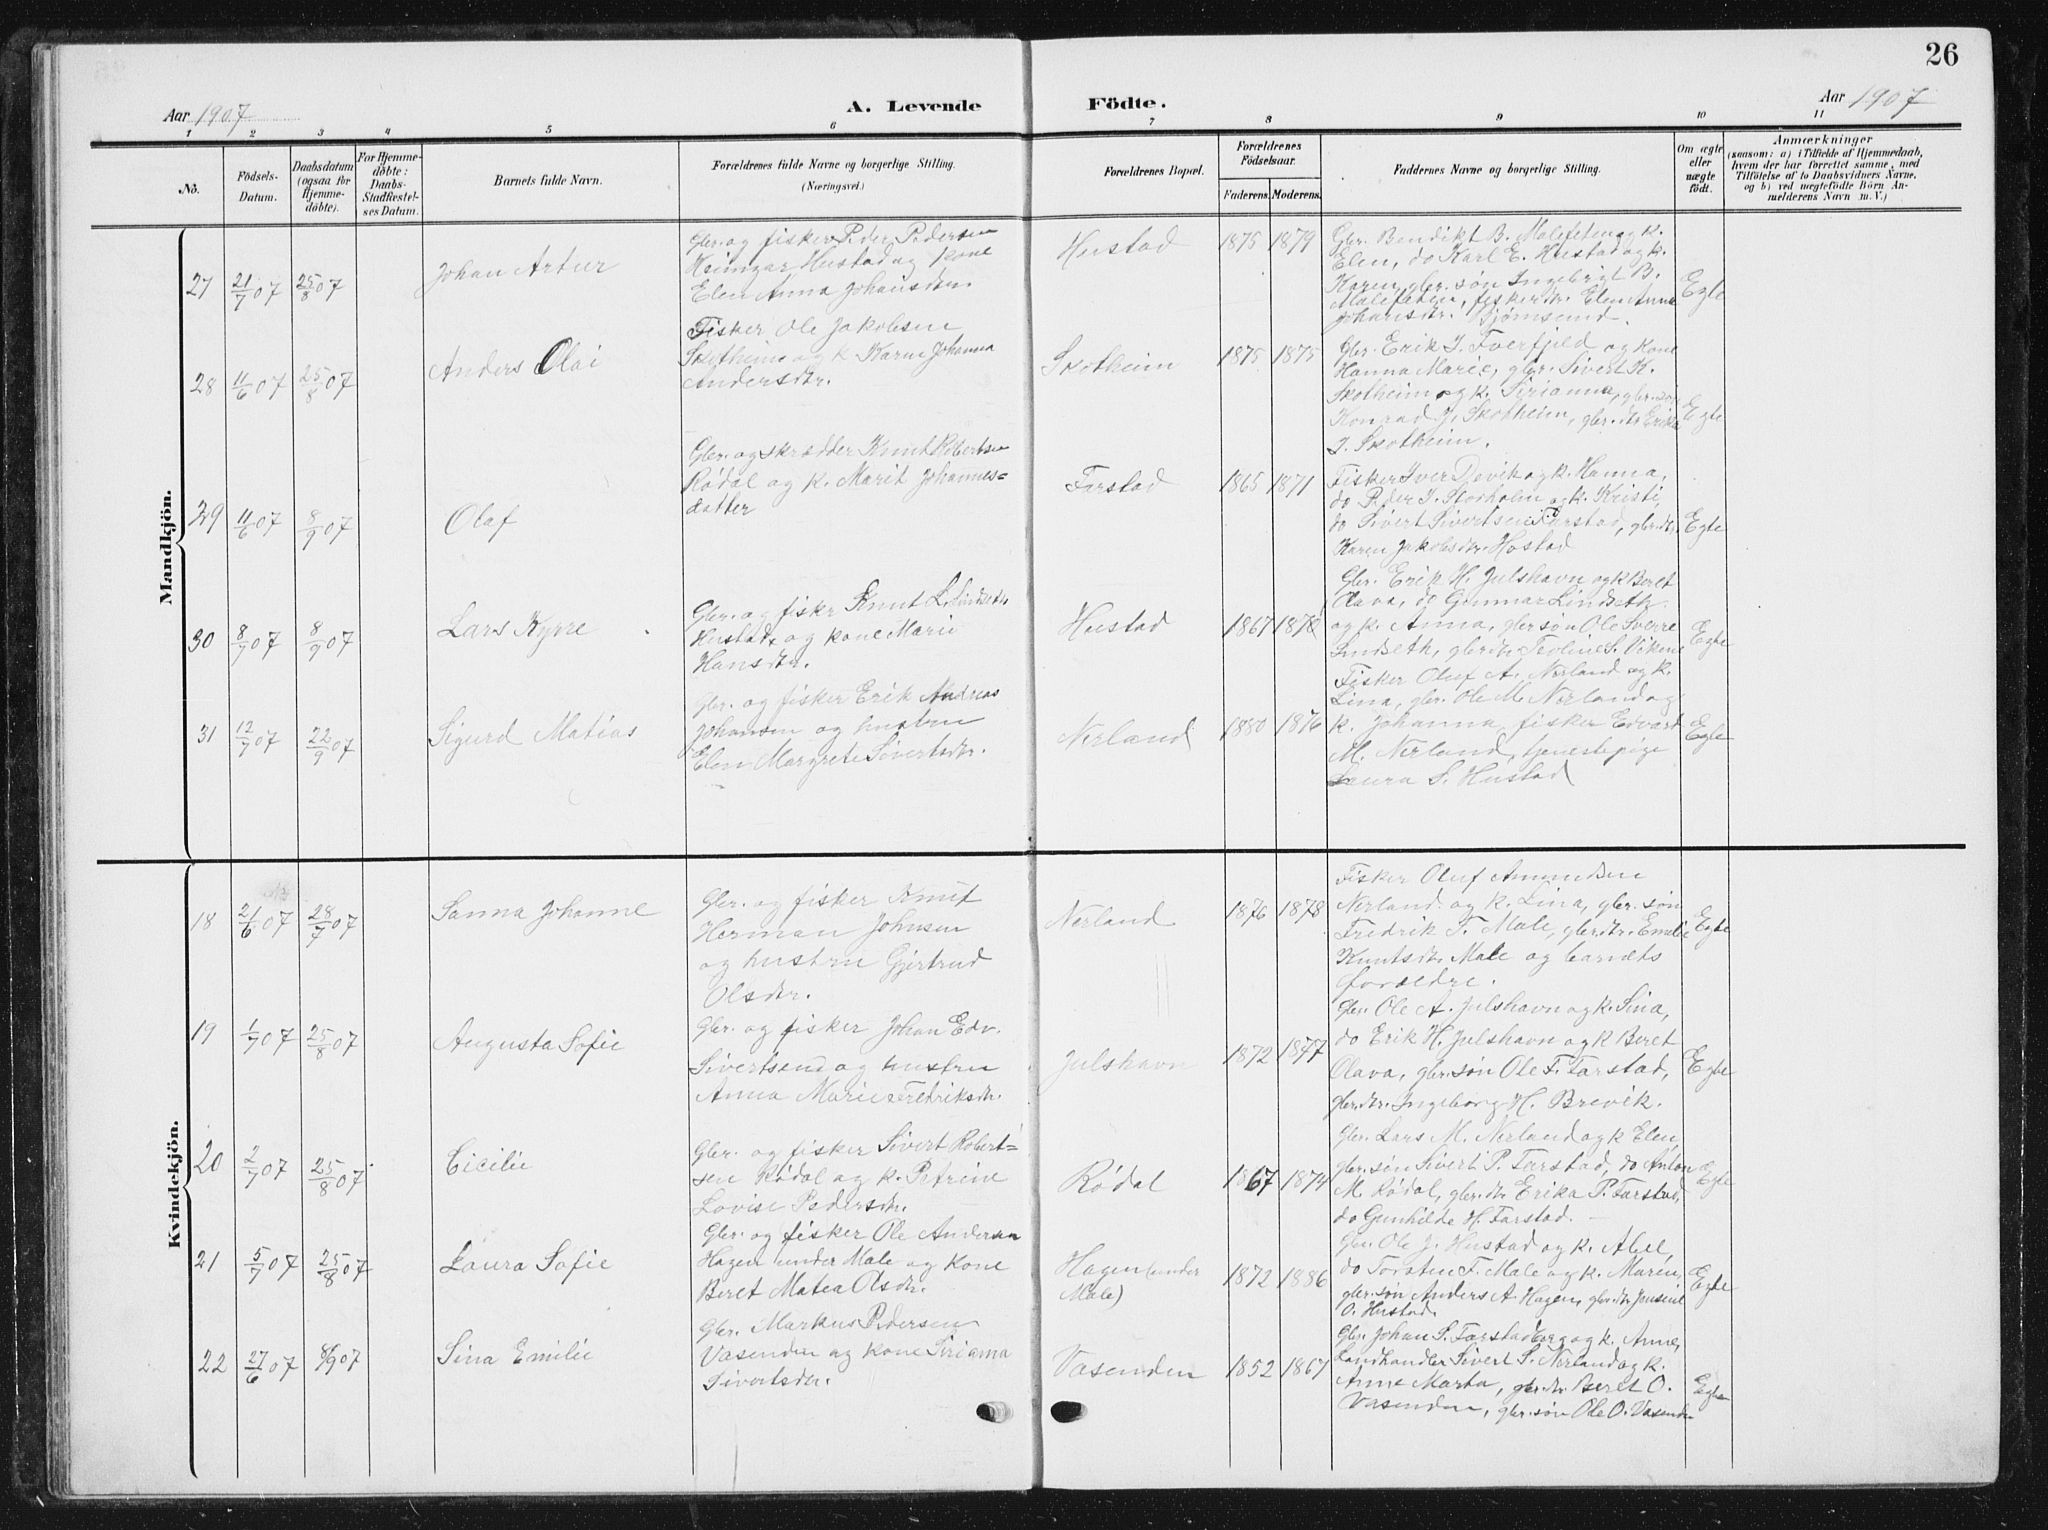 26
Aar 1907
A. Levende Födte.
Aar 1907
1 2 3 4 5 6 7 8 9 10 11
No.
Födsels-
Datum.
Daabsdatum
(ogsaa for
Hjemme-
døbte).
For Hjemme-
döbte:
Daabs-
Stadfæstel-
ses Datum.
Barnets fulde Navn.
Forældrenes fulde Navne og borgerlige Stilling.
(Næringsvei.)
Forældrenes Bopæl.
Forældrenes
Födselsaar.
Faderens. Moderens.
Faddernes Navne og borgerlige Stilling.
Om ægte
eller
uægte
födt.
Anmærkninger
(saasom: a) i Tilfælde af Hjemmedaab,
hvem der har forrettet samme, med
Tilføielse af to Daabsvidners Navne,
og b) ved uægtefödte Börn An-
melderens Navn m. V.)
Mandkjön.
27 21/7 07 25/8 07
Johan Artur
Gbr. og fisker Peder Pedersen
Heimgar Hustad og kone
Elen Anna Johansdtr.
Hustad
1875 1879
Gbr. Bendikt B. Malefeten og k.
Elen, do Karl E. Hustad og k.
Karen, gbr. søn Ingebrigt B.
Malefeten, fisker dtr. Elen Anna
Johansdtr. Bjørnsund.
Egte
28 11/6 07 25/8 07
Anders Olai
Fisker Ole Jakobsen
Skotheim og k Karen Johanna
Andersdtr.
Skotheim
1875 1875
Gbr. Erik J. Tverfjeld og kone
Hanna Marie, gbr. Sivert K.
Skotheim og k. Sirianna, gbr. søn
Konrad J. Skotheim, gbr. dtr Erika
J. Skotheim.
Egte
29 11/6 07 8/9 07
Olaf
Gbr. og skrædder Knut Robertsen
Rødal og k. Marit Johannes=
datter
Farstad
1865 1871
Fisker Iver Devik og k. Hanna,
do Peder J. Storholm og k. Kristi,
do Sivert Sivertsen Farstad, gbr. dtr.
Karen Jakobsdtr. Hostad
Egte
30 8/7 07 8/9 07
Lars Kyrre
Gbr. og fisker Knut L. Lindseth
Hustad og kone Marie
Hansdtr.
Hustad
1867
Gbr. Erik H. Julshavn og k Beret
Olava, do Gunnar Lindseth
og k. Anna, gbr søn Ole Sverre
Lindseth, gbr. dtr S. Vikene
Egte
31 12/7 07 22/9 07
Sigurd Matias
Gbr. og fisker Erik Andreas
Johansen og hustru
Elen Margrete Sivertsdtr.
Nerland
1880 1876
Fisker Oluf A. Nerland og k.
Lina, gbr. Ole M. Nerland og
k. Johanna, fisker Edvard
M. Nerland, tjenestepige
Laura S. Hustad
Egte
Kvindekjön.
18 21/6 07 28/7 07
Sanna Johanne
Gbr. og fisker Knut
Herman Johnsen
og hustru Gjertrud
Olsdtr.
Nerland
"
1876 1878
Fisker Oluf Amundsen
Nerland og k. Lina, gbr. søn
Fredrik F. Male, gbr. dtr. Emilie
Knutsdtr. Male og barnets
forældre.
Egte
19 1/7 07 25/8 07
Augusta Sofie
Gbr. og fisker Johan Edv.
Sivertsen og hustru
Anna Marie Fredriksdtr.
Julshavn
1872 1877
Gbr. Ole A. Julshavn og k. Sina,
do Erik H. Julshavn og k Beret
Olava, gbr. søn Ole F. Farstad,
gbr. dtr. Ingeborg H. Brevik.
Egte
20 2/7 07 25/8 07
Cicilie
Gbr. og fisker Sivert Robert=
sen Rødal og k. Petrine
Lovise Pedersdtr.
Rødal
1867 1874
Gbr. Lars M. Nerland og k Elen,
gbr. søn Sivert P. Farstad, do Anton
M. Rødal, gbr. dtr Erika P. Farstad,
do Gunhilde H. Farstad.
Egte
21 5/7 07 25/8 07
Laura Sofie
Gbr. og fisker Ole Andersen
Hagen under Male og kone
Beret Matea Olsdtr.
Hagen (under
Male)
1872 1886
Gbr. Ole J. Hustad og k. Abel,
do Torsten F. Male og k. Maren,
gbr. søn Anders A. Hagen, gbr. dtr Jensine
O. Hustad.
Egte
22 27/6 07 8/9 07
Sina Emilie
Gbr. Markus Pedersen
Vasenden og kone Sirianna
Sivertsdtr.
Vasenden
1852 1867
Gbr. Johan S. Farstadberg og k. Anne,
Landhandler Sivert S. Nerland og k.
Anne Marta, gbr. dtr. Beret O.
Vasenden, gbr. søn Ole O. Vasenden
Egte